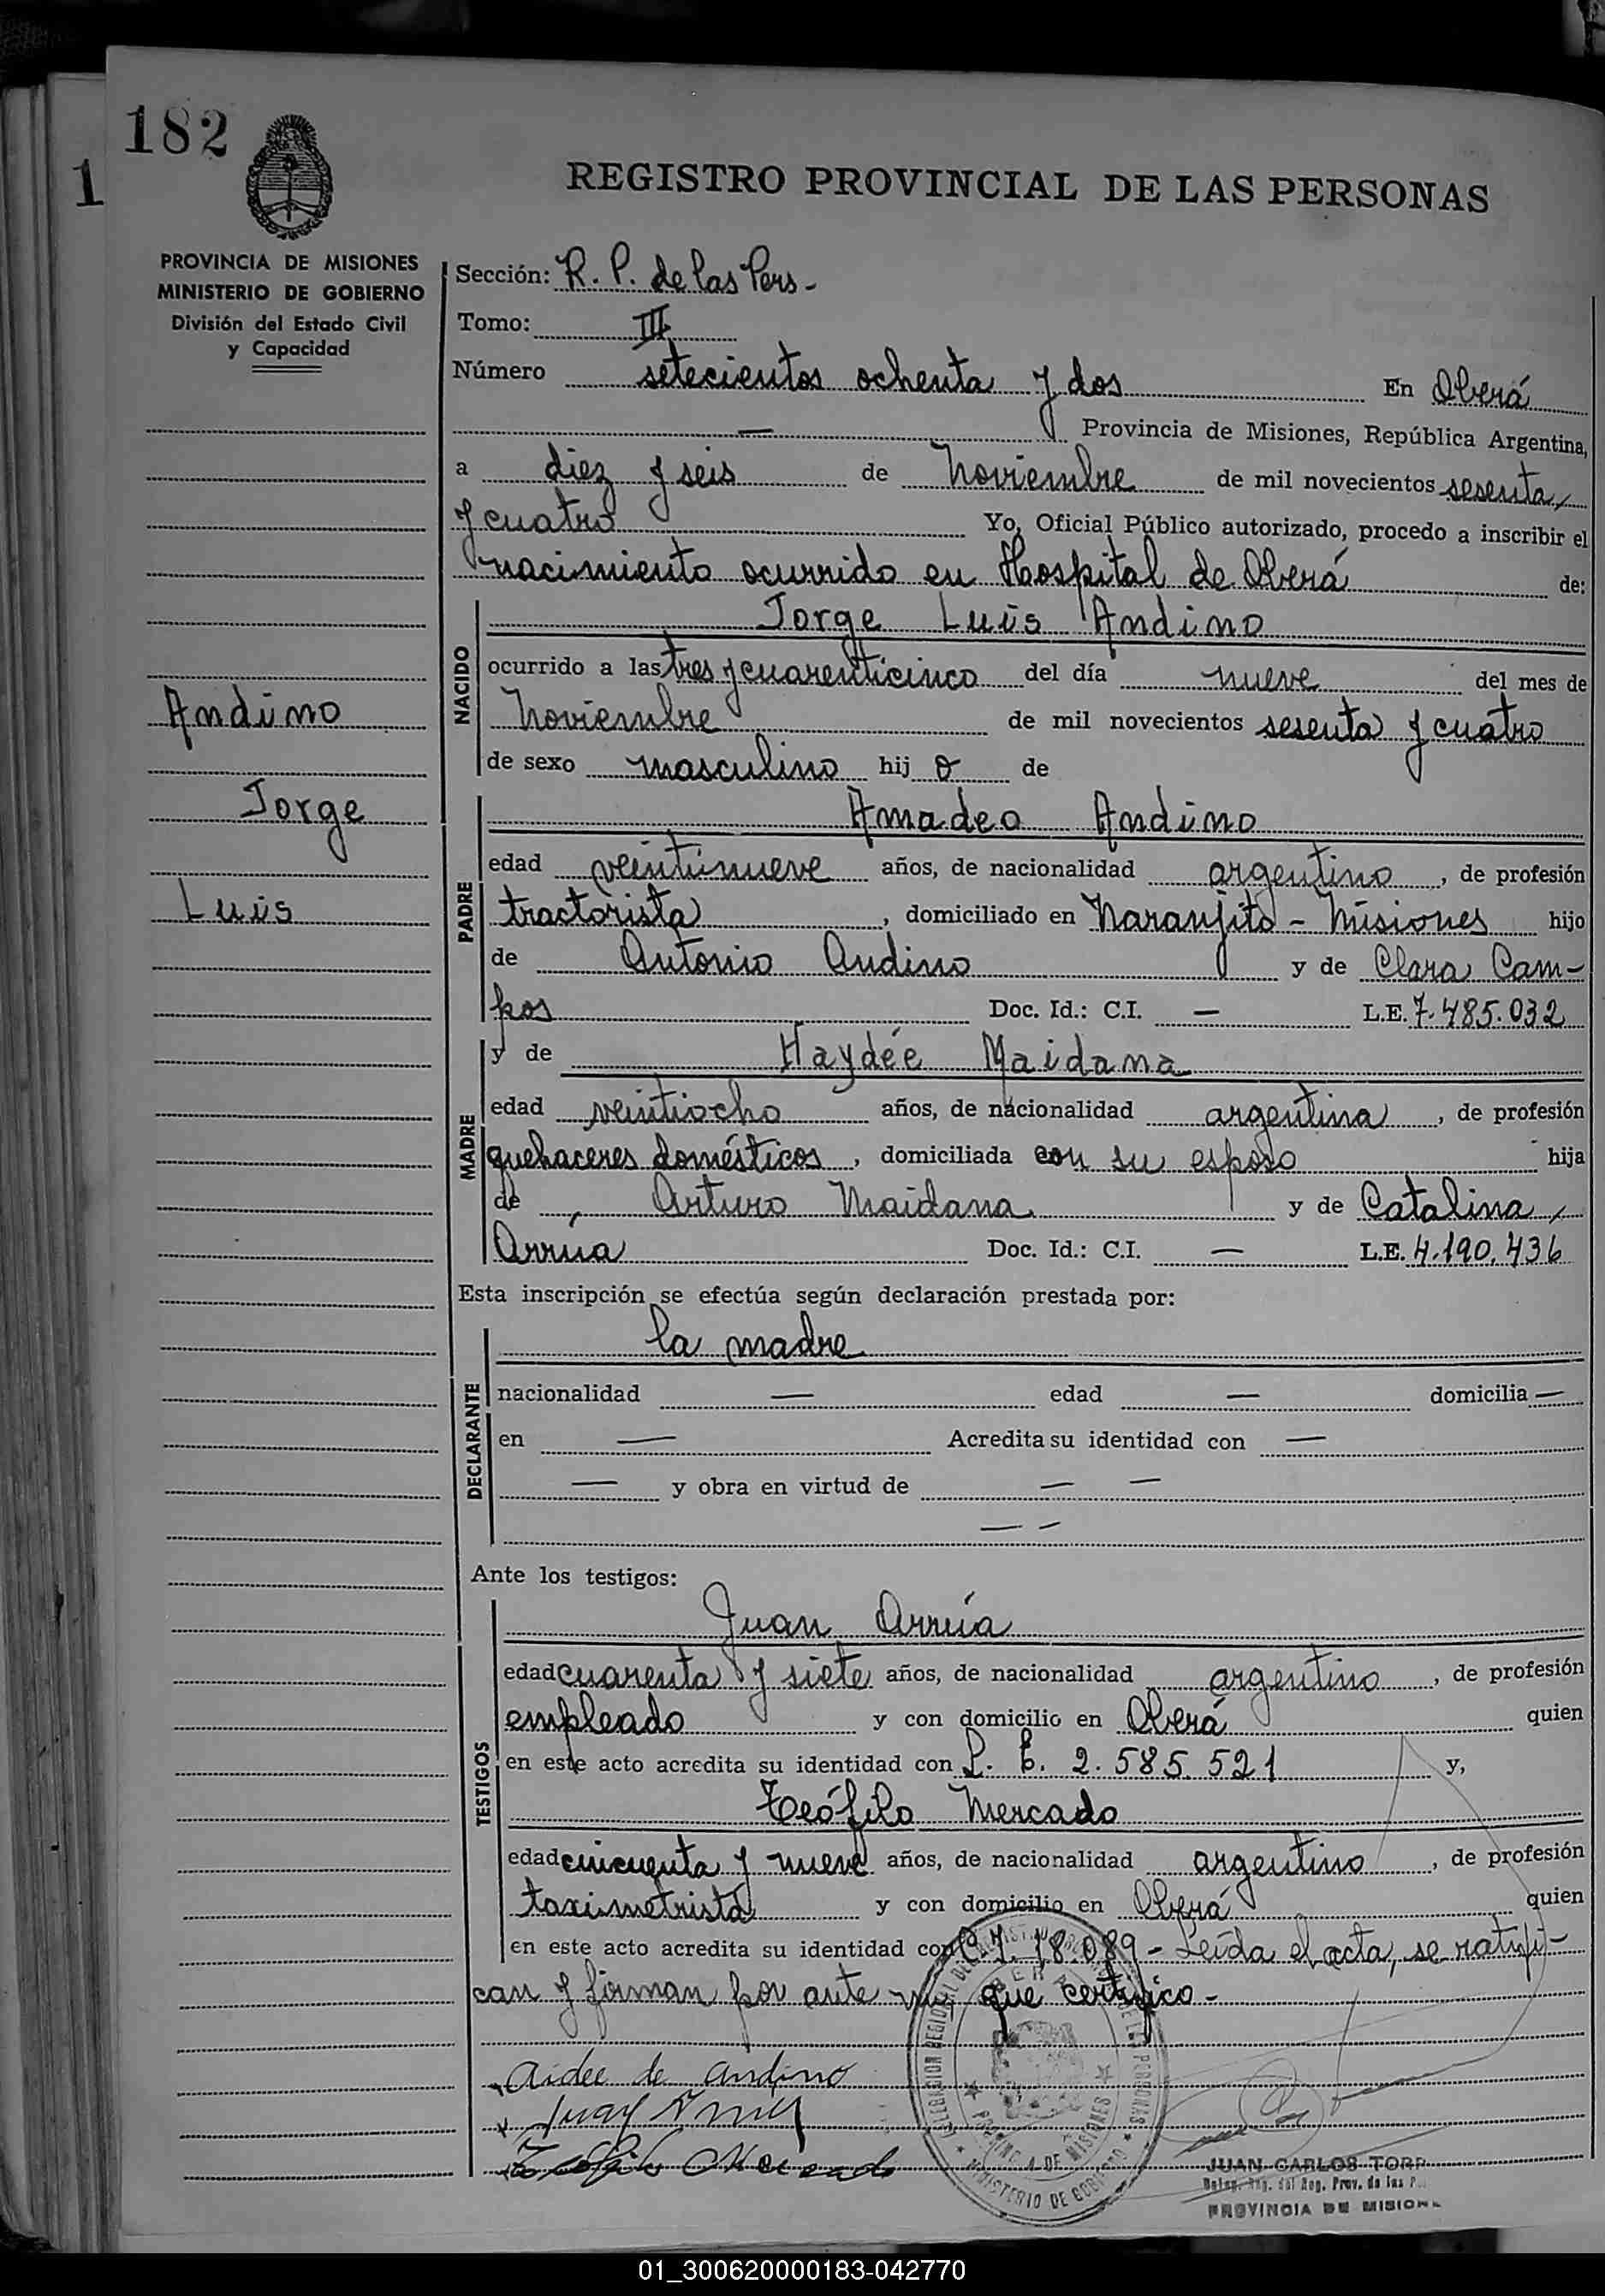 182
1
REGISTRO PROVINCIAL DE LAS PERSONAS
PROVINCIA DE MISIONES
MINISTERIO DE GOBIERNO
División del Estado Civil
y Capacidad
Andino
Jorge
Luis
Sección: R. P. de las Pers -
Tomo: III
Número setecientos ochenta y dos En Oberá
— Provincia de Misiones, República Argentina,
a diez y seis de Noviembre de mil novecientos sesenta
y cuatro Yo, Oficial Público autorizado, procedo a inscribir el
nacimiento ocurrido en Hospital de Oberá de:
NACIDO
Jorge Luis Andino
ocurrido a las tres y cuarenticinco del día nueve del mes de
Noviembre de mil novecientos sesenta y cuatro
de sexo masculino hij o de
PADRE
Amadeo Andino
edad veintinueve años, de nacionalidad argentino, de profesión
tractorista, domiciliado en Naranjito - Misiones hijo
de Antonio Andino y de Clara Cam-
pos Doc. Id.: C.I. — L.E. 7.485.032
MADRE
y de Haydée Maidana
edad veintiocho años, de nacionalidad argentina, de profesión
quehaceres domésticos, domiciliada con su esposo hija
de Arturo Maidana y de Catalina
Arrúa Doc. Id.: C.I. — L.E. 4.190.436
Esta inscripción se efectúa según declaración prestada por:
DECLARANTE
la madre
nacionalidad — edad — domicilia —
en — Acredita su identidad con —
— y obra en virtud de — —
— —
Ante los testigos:
TESTIGOS
Juan Arrúa
edad cuarenta y siete años, de nacionalidad argentino, de profesión
empleado y con domicilio en Oberá quien
en este acto acredita su identidad con L. E. 2.585.521 y,
Teófilo Mercado
edad cincuenta y nueve años, de nacionalidad argentino, de profesión
taximetrista y con domicilio en Oberá quien
en este acto acredita su identidad con C.I. 18.089 - Leída el acta, se ratifi-
can y firman por ante mí, que certifico -
Aidee de andino
Juan Arrua
Teofilo Mercado
PROVINCIA DE MISIONES
MINISTERIO DE GOBIERNO
JUAN CARLOS TORR
Reg. Prov. de las P
PROVINCIA DE MISION
01_300620000183-042770